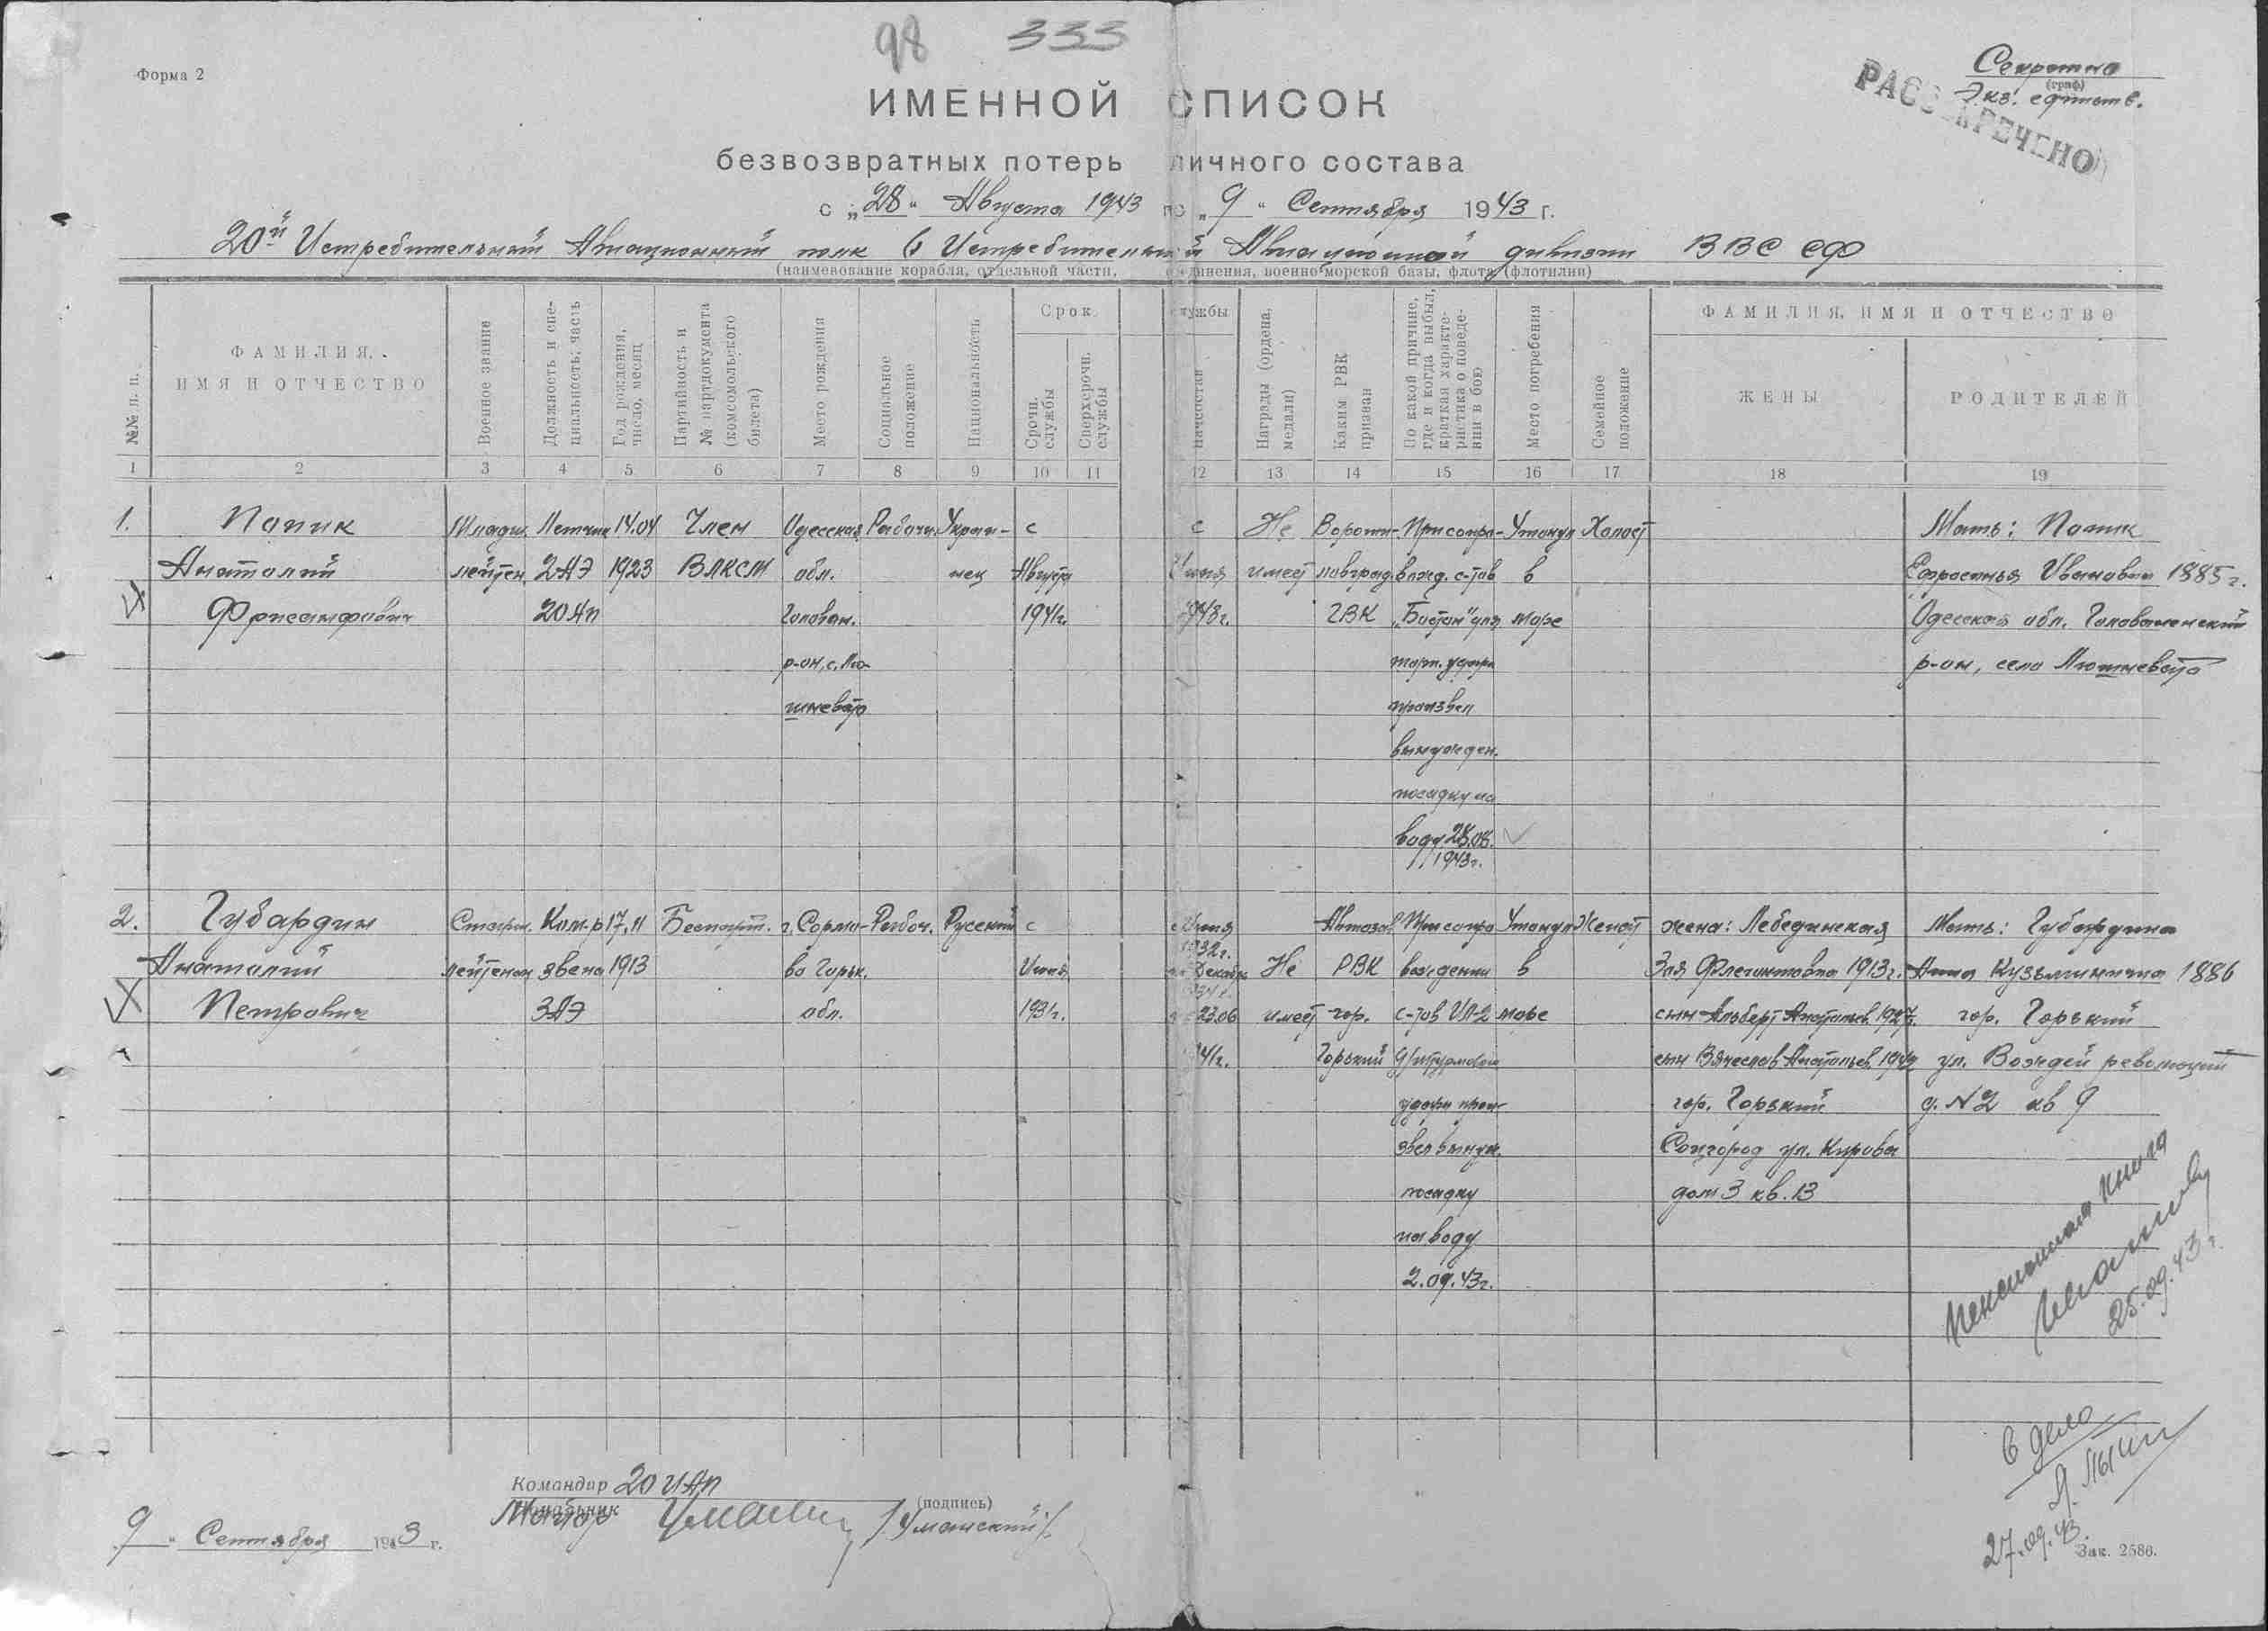 98 333
Форма 2
Секретно
(гриф)
Экз. единств.
РАССЕКРЕЧЕНО
ИМЕННОЙ СПИСОК
безвозвратных потерь личного состава
с „28“ Августа 1943 по „9“ Сентября 1943 г.
20й Истребительный Авиационный полк 6 Истребительной Авиационной дивизии ВВС СФ
(наименование корабля, отдельной части, соединения, военно-морской базы, флота (флотилии)
№№ п. п.
ФАМИЛИЯ,
ИМЯ И ОТЧЕСТВО
Военное звание
Должность и спе-
циальность; часть
Год рождения,
число, месяц
Партийность и
№ партдокумента
(комсомольского
билета)
Место рождения
Социальное
положение
Национальность
Срок службы
Срочн.
службы
Сверхсрочн.
службы
Начсостав
Награды (ордена,
медали)
Каким РВК
призван
По какой причине,
где и когда выбыл,
краткая характе-
ристика о поведе-
нии в бою
Место погребения
Семейное
положение
ФАМИЛИЯ, ИМЯ И ОТЧЕСТВО
ЖЕНЫ
РОДИТЕЛЕЙ
1 2 3 4 5 6 7 8 9 10 11 12 13 14 15 16 17 18 19
1. Попик Младш. Летчик 14.04 Член Одесская Рабочи Украи- с с Не Вороши- При сопро- Утонул Холост Мать: Попик
Анатолий лейтен. 2АЭ 1923 ВЛКСМ обл. нец Августа Июня имеет ловград. вожд. с-тов в Ефросинья Ивановна 1885 г.
20 АП Голован. 1941г. 1943г. ГВК „Бостон“ для море Одесская обл. Голованевский
р-он, с. Лю- торп. удара р-он, село Люшневато
шневато произвел
вынужден.
посадку на
воду 28.08.
1943г.
2. Губардин Старш. Ком-р 17.11 Беспарт. г. Сормо- Рабоч. Русский с с Июня Автозав. При сопро Утонул Женат жена: Лебединская Мать: Губардина
1932г.
Анатолий лейтенан звена 1913 во Горьк. Июня Декабрь Не РВК вождении в Зоя 1913г. Анна Кузьминична 1886
1934г.
Петрович 3АЭ обл. 1931г. с 23.06 имеет гор. с-тов ИЛ-2 море сын Альберт Анатольев. гор. Горький
41г. Горький д/штурмовки сын Вячеслав Анатольев. ул. Вождей революции
удара прои- гор. Горький д. N2 кв 9
звел вынуж. Соцгород ул. Кирова
посадку дом 3 кв. 13
на воду
2.09.43г.
Пенсионная книга
25.09.43г.
В дело
27.09.43.
Командир 20 ИАП
Начальник
Майор (подпись) /Уманский/
„9“ Сентября 1943 г.
Зак. 2586.